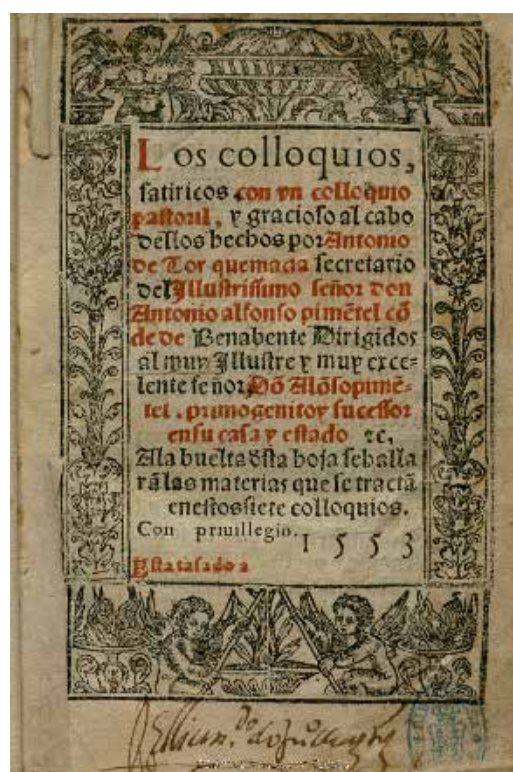 Los colloquios,
satiricos con vn colloquio
pastoril, y gracioso al cabo
dellos hechos por Antonio
de Tor quemada secretario
del Illustrissimo señor don
Antonio alfonso pimētel cō
de de Benabente Dirigidos
al muy Illustre y muy exce-
lente señor Dō Alōso pimē-
tel. primogenito y sucessor
en su casa y estado ⁊c.
A la buelta dsta hoja se halla
rā las materias que se tractā
en estos siete colloquios.
Con priuillegio.
1553
Esta tasado a